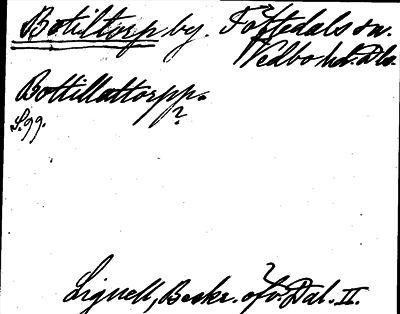 Botiltorp by. Töftedals sn.
Vedbo hd. Dls.
Bottillattorpp.
?
S. 99.
Lignell, Beskr. öfv. Dal. II.